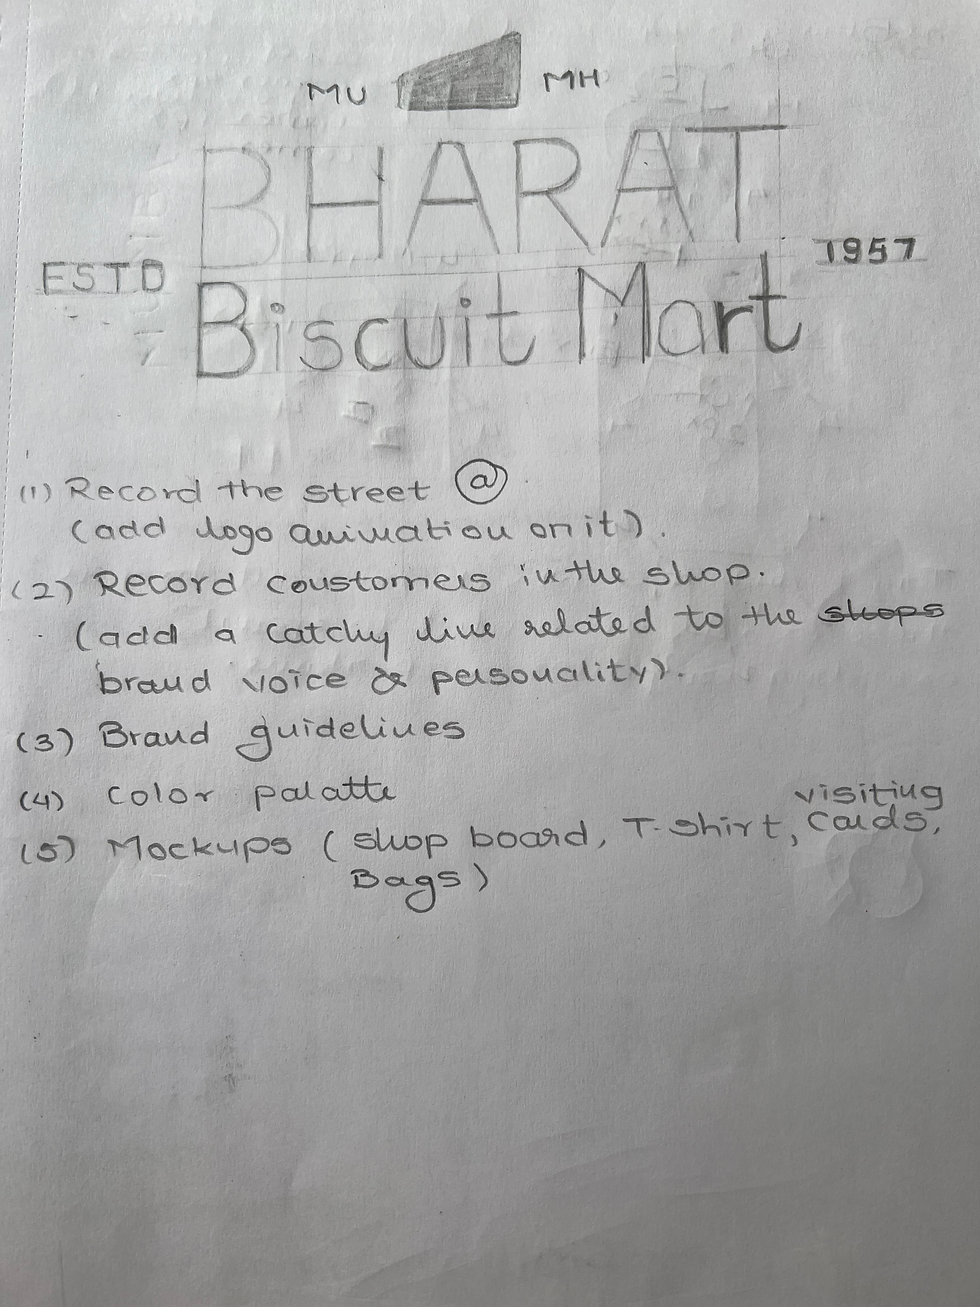 MU MH
BHARAT
ESTD 1957
Biscuit Mart
(1) Record the street @
(add logo animation on it).
(2) Record coustomers in the shop.
(add a catchy line related to the shops
brand voice & personality).
(3) Brand guidelines
(4) Color palatte
(5) Mockups ( shop board, T-shirt, visiting cards,
Bags)